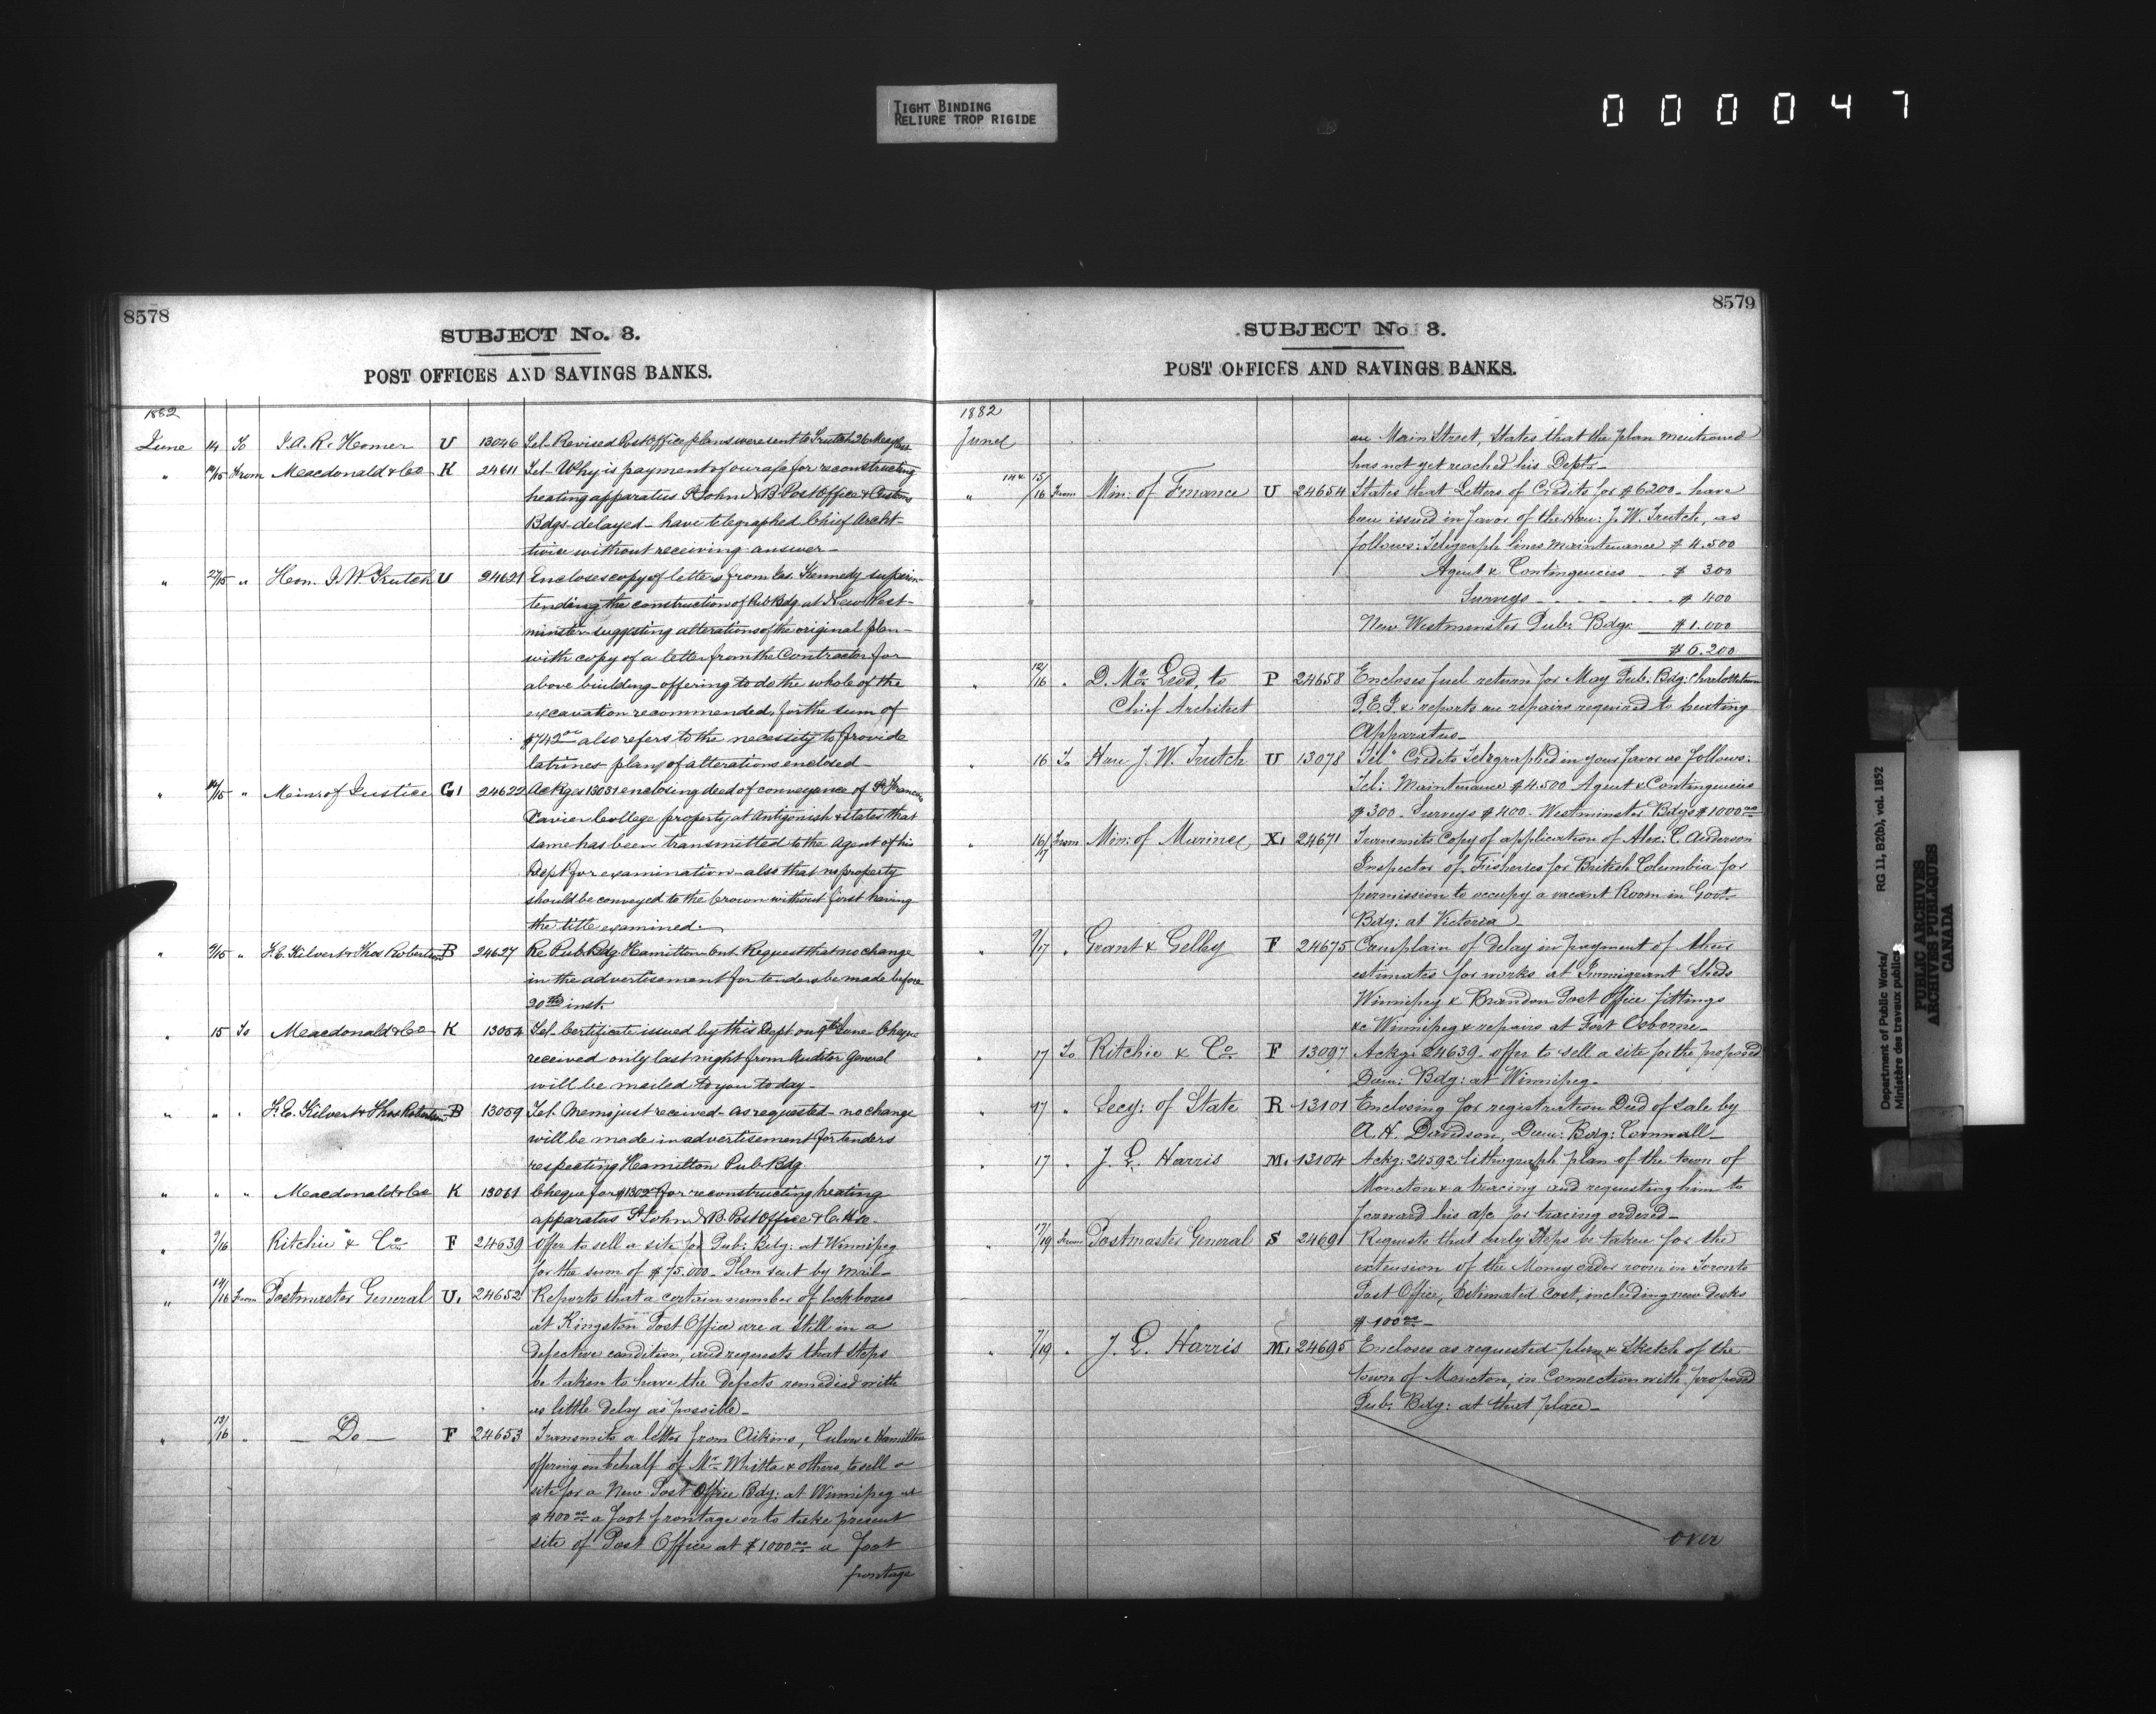 TIGHT BINDING
RELIURE TROP RIGIDE
000047
8578
SUBJECT No. 3.
POST OFFICES AND SAVINGS BANKS.
1882
June 14 To J.A.R. Homer U 13046 Tel- Revised Post Office plans were sent to Trutch 26 May last
" 14/15 From Macdonald & Co K 24611 Tel- Why is payment of our a/c for reconstructing
heating apparatus St John N B Post Office & Customs
Bdgs delayed - have telegraphed Chief Archt-
twice without receiving answer-
" 27/15 " Hon. J. W. Trutch U 24621 Encloses copy of letters from Jas. Kennedy superin-
tending the construction of Pub Bdg at New West-
minster suggesting alterations of the original plan-
with copy of a letter from the Contractor for
above building offering to do the whole of the
excavation recommended, for the sum of
$742.00 also refers to the necessity to provide
latrines- plan of alterations enclosed-
" 14/15 " Minr of Justice G1 24622 Ackges 13031 enclosing deed of conveyance of St Francis
Xavier College property at Antigonish & states that
same has been transmitted to the Agent of his
Dept for examination- also that no property
should be conveyed to the Crown without first having
the title examined.
" 9/15 " F.E. Kilvert & Thos Robertson B 24627 Re Pub Bdg Hamilton Ont. Request that no change
in the advertisement for tenders be made before
20th inst.
" 15 To Macdonald & Co K 13054 Tel- Certificate issued by this Dept on 9th June Cheque
received only last night from Auditor General
will be mailed to you to day-
" " " F.E. Kilvert & Thos Robertson B 13059 Tel. Memo just received- as requested- no change
will be made in advertisement for tenders
respecting Hamilton Pub Bdg
" " " Macdonald & Co K 13061 Cheque for $1302 for reconstructing heating
apparatus St John N.B. Post Office & C. Hse.
" 9/16 Ritchie & Co F 24639 Offer to sell a site for Pub: Bdg: at Winnipeg
for the sum of $75.000- Plan sent by mail-
" 14/16 From Postmaster General U. 24652 Reports that a certain number of lock boxes
at Kingston Post Office are a still in a
defective condition, and requests that steps
be taken to have the defects remedied with
as little delay as possible-
" 13/16 " - Do - F 24653 Transmits a letter from Aikins, Culver & Hamilton
offering on behalf of Mr Whitla & others, to sell a
site for a New Post Office Bdg: at Winnipeg at
$400.00 a foot frontage or to take present
site of Post Office at $1000.00 a foot
frontage
8579
SUBJECT No. 3.
POST OFFICES AND SAVINGS BANKS.
1882
June on Main Street, States that the plan mentioned
has not yet reached his Dept-
" 14 & 15/16 From Min: of Finance U 24654 States that Letters of Credits for $6200- have
been issued in favor of the Hon: J. W. Trutch, as
follows: Telegraph lines maintenance $ 4.500
Agent & Contingencies $ 300
" Surveys $ 400
New Westminster Pub: Bdg: $1.000
$6.200
" 12/16 " D. McLeod, to P 24658 Encloses fuel return for May Pub: Bdg: Charlottetown
Chief Architect P.E.I. & reports on repairs required to heating
Apparatus-
" 16 To Hon J. W. Trutch U 13078 Tel" Credits Telegraphed in your favor as follows:
Tel: Maintenance $4.500 Agent & Contingencies
$300. Surveys $400- Westminster Bdgs $1000.00
" 16/17 From Min: of Marine X. 24671 Transmits Copy of application of Alex: C. Anderson
Inspector of Fisheries for British Columbia for
permission to occupy a vacant Room in Govt.
Bdg: at Victoria
" 9/17 " Grant & Gelley F 24675 Complain of delay in payment of their
estimates for works at Immigrant Sheds
Winnipeg & Brandon Post Office fittings
&c Winnipeg & repairs at Fort Osborne-
" 17 To Ritchie & Co F 13097 Ackg: 24639- offer to sell a site for the proposed
Dom: Bdg: at Winnipeg-
" 17 " Secy: of State R 13101 Enclosing for registration Deed of Sale by
A. H. Davidson, Dom: Bdg: Cornwall-
" 17 " J. L. Harris M. 13104 Ackg: 24592 lithograph plan of the town of
Moncton & a tracing and requesting him to
forward his a/c for tracing ordered-
" 17/19 From Postmaster General S 24691 Requests that early Steps be taken for the
extension of the Money order room in Toronto
Post Office, Estimated Cost, including new desks
$100.00-
" 7/19 " J. L. Harris M. 24695 Encloses as requested plan & Sketch of the
town of Moncton, in Connection with proposed
Pub: Bdg: at that place-
over
Department of Public Works/
Ministère des travaux publics
RG 11, B2(b), vol. 1852
PUBLIC ARCHIVES
ARCHIVES PUBLIQUES
CANADA